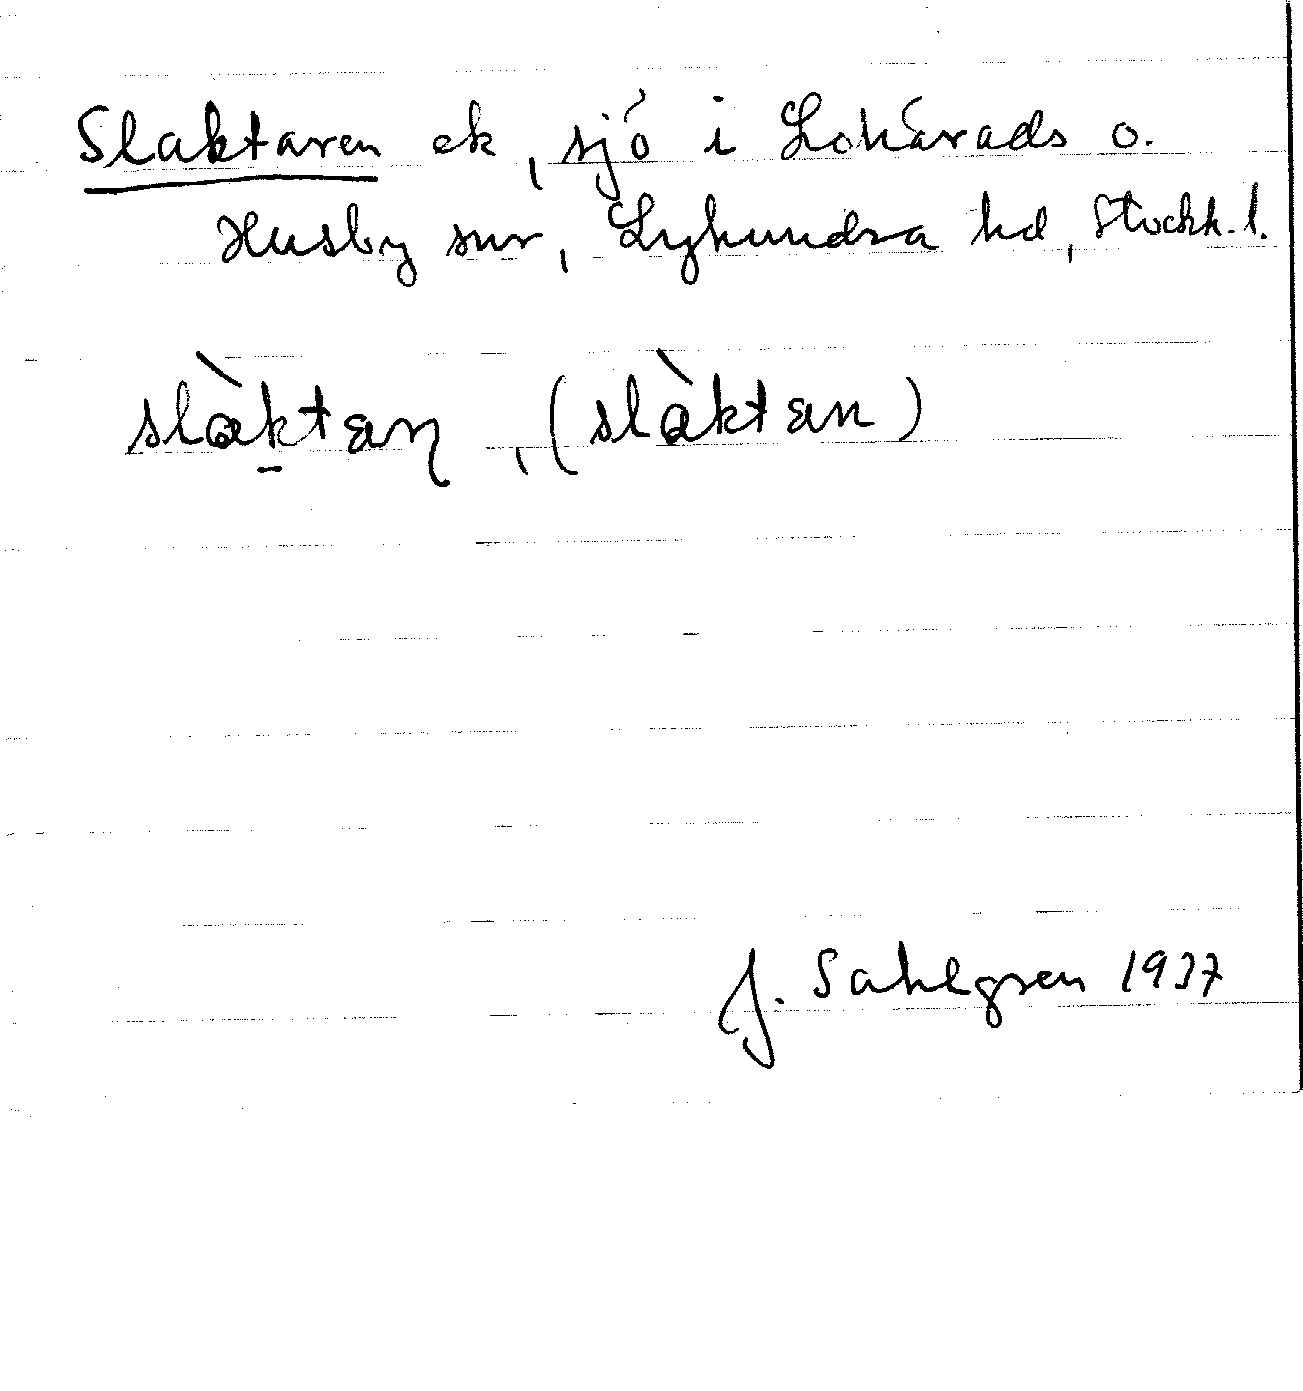 Slaktaren ek, sjö i Lohärads o.
Husby snr, Lyhundra hd, Stockh. l.
slàktaɳ, (slàktan)
J. Sahlgren 1937